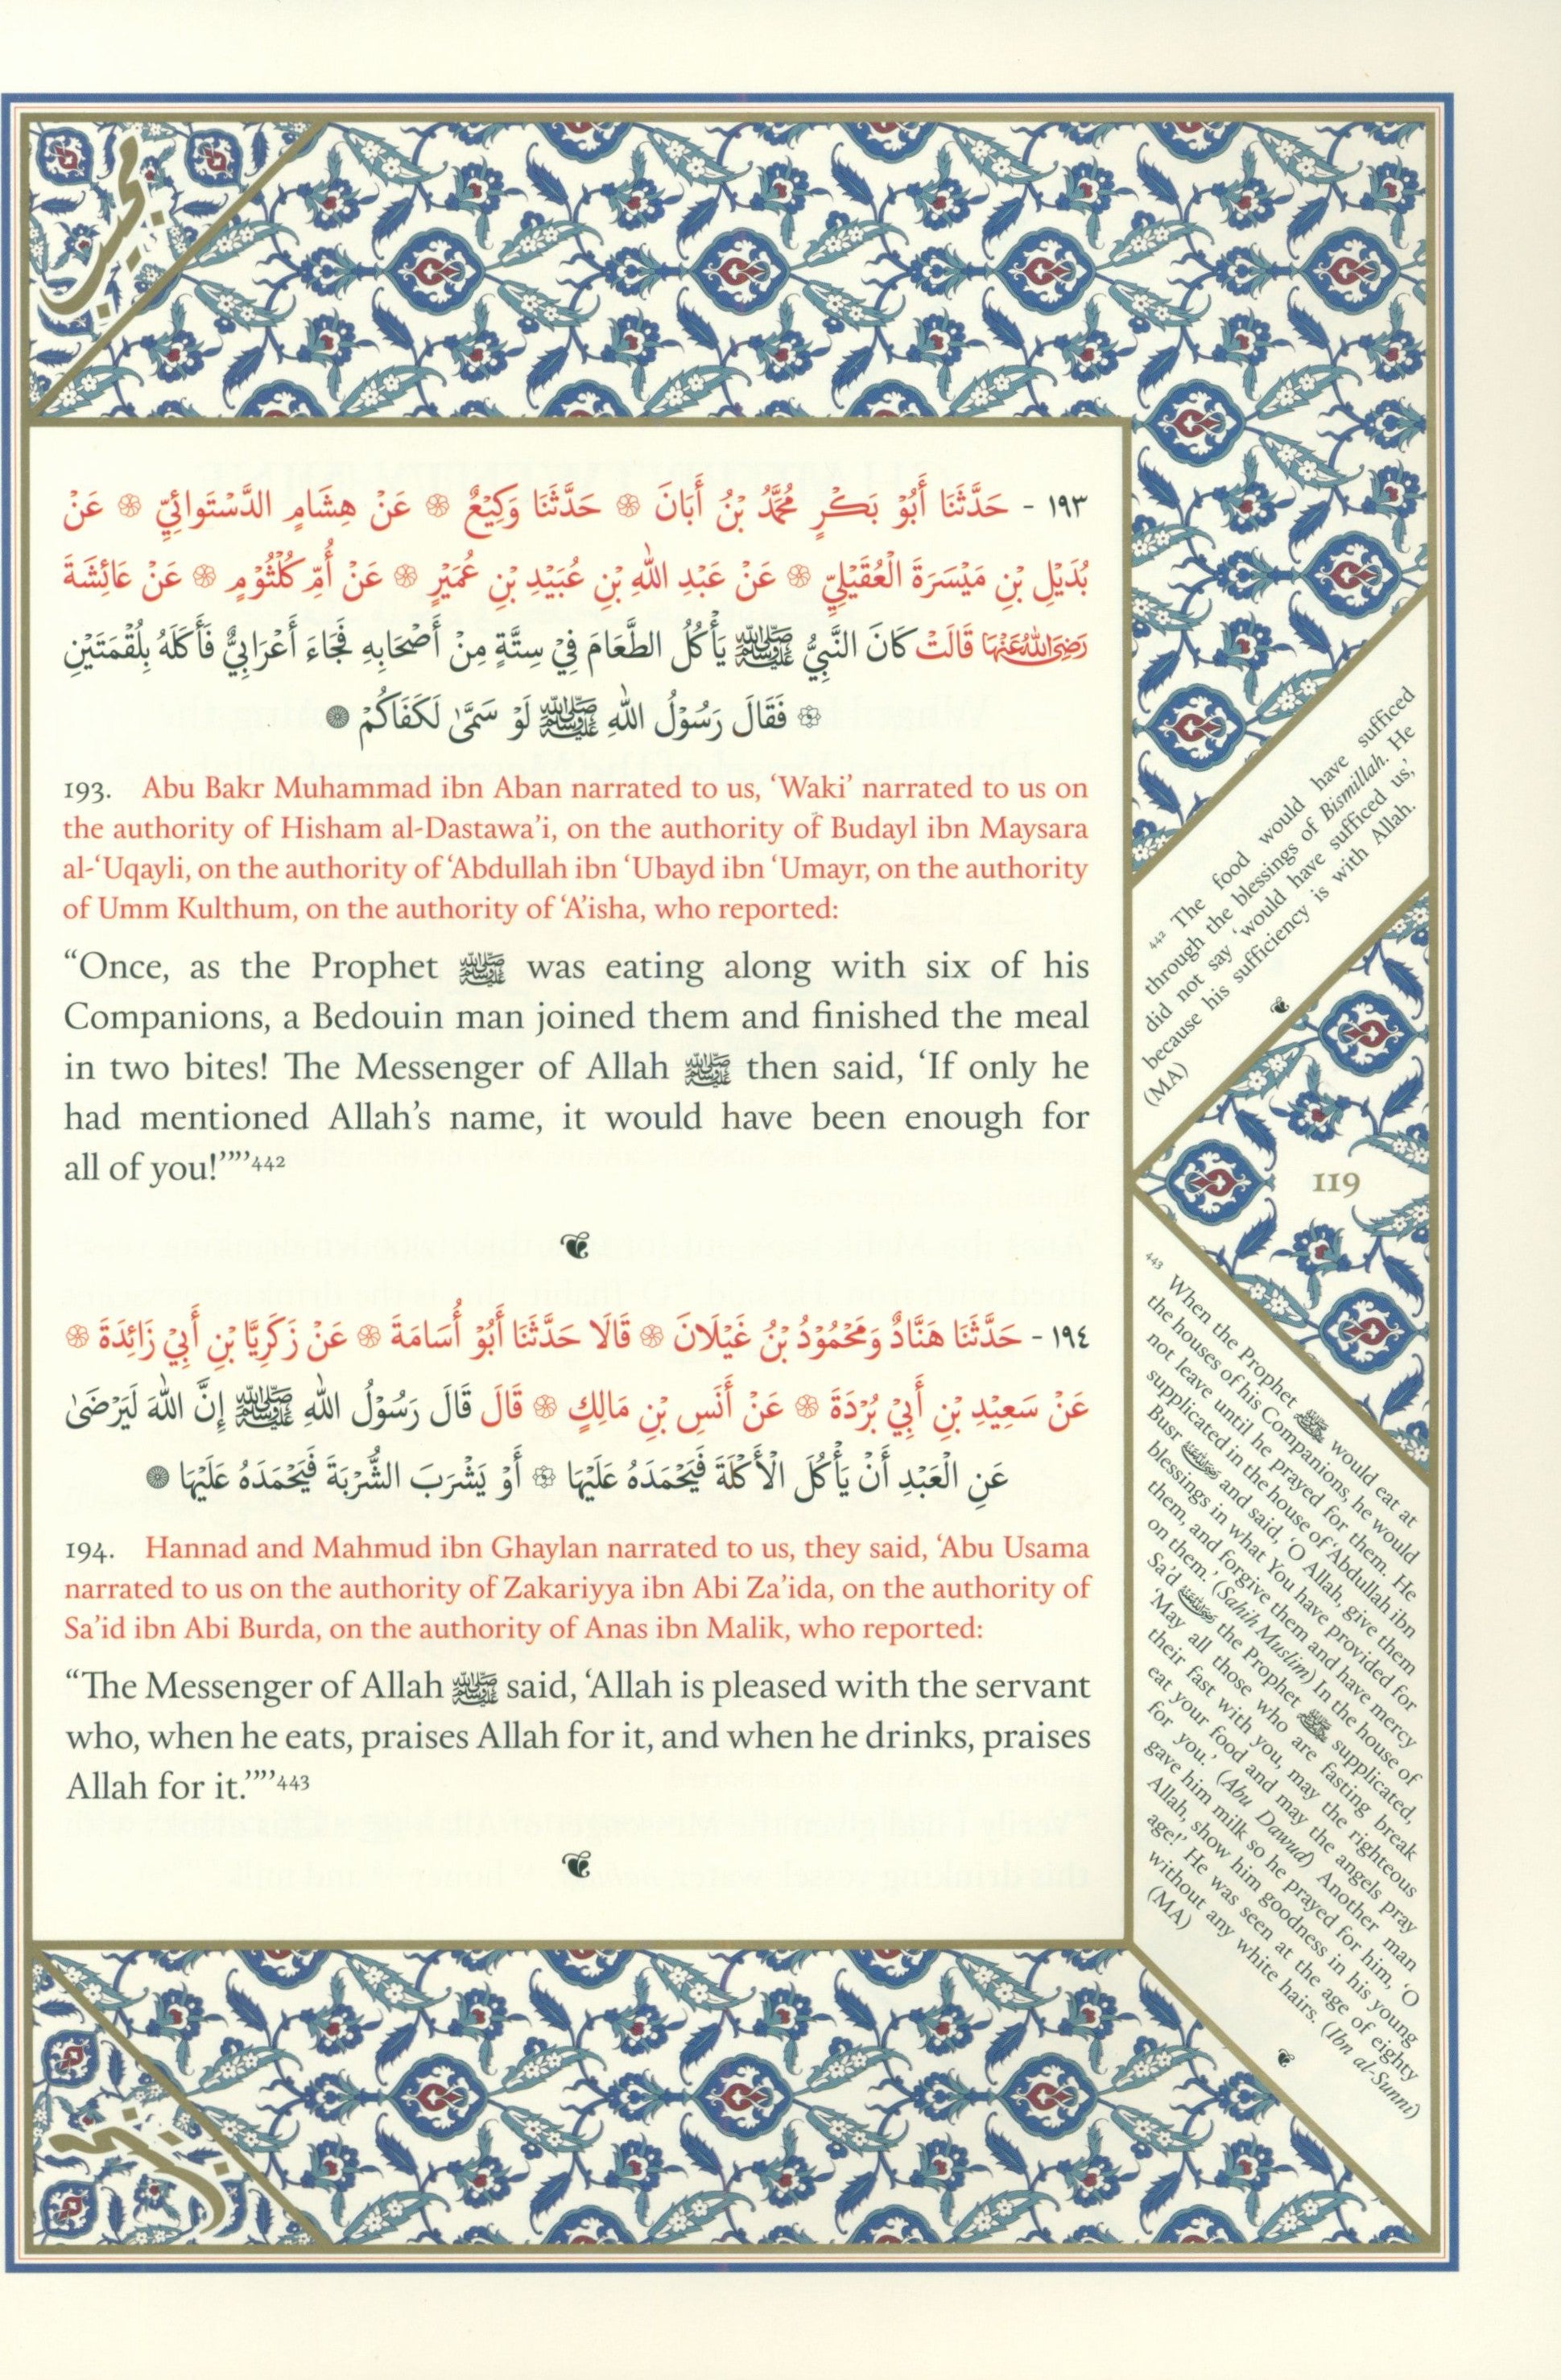 مجيب
١٩٣ - حَدَّثَنَا أَبُوْ بَكْرٍ مُحَمَّدُ بْنُ أَبَانَ ۞ حَدَّثَنَا وَكِيْعٌ ۞ عَنْ هِشَامٍ الدَّسْتَوائِيِّ ۞ عَنْ
بُدَيْلِ بْنِ مَيْسَرَةَ الْعُقَيْلِيِّ ۞ عَنْ عَبْدِ اللهِ بْنِ عُبَيْدِ بْنِ عُمَيْرٍ ۞ عَنْ أُمِّ كُلْثُوْمٍ ۞ عَنْ عَائِشَةَ
رَضِيَ اللهُ عَنْهَا قَالَتْ كَانَ النَّبِيُّ ﷺ يَأْكُلُ الطَّعَامَ فِيْ سِتَّةٍ مِنْ أَصْحَابِهِ فَجَاءَ أَعْرَابِيٌّ فَأَكَلَهُ بِلُقْمَتَيْنِ
۞ فَقَالَ رَسُوْلُ اللهِ ﷺ لَوْ سَمَّىٰ لَكَفَاكُمْ ۞
193. Abu Bakr Muhammad ibn Aban narrated to us, ‘Waki’ narrated to us on
the authority of Hisham al-Dastawa’i, on the authority of Budayl ibn Maysara
al-‘Uqayli, on the authority of ‘Abdullah ibn ‘Ubayd ibn ‘Umayr, on the authority
of Umm Kulthum, on the authority of ‘A’isha, who reported:
“Once, as the Prophet ﷺ was eating along with six of his
Companions, a Bedouin man joined them and finished the meal
in two bites! The Messenger of Allah ﷺ then said, ‘If only he
had mentioned Allah’s name, it would have been enough for
all of you!’””442
١٩٤ - حَدَّثَنَا هَنَّادٌ وَمَحْمُوْدُ بْنُ غَيْلَانَ ۞ قَالَا حَدَّثَنَا أَبُوْ أُسَامَةَ ۞ عَنْ زَكَرِيَّا بْنِ أَبِيْ زَائِدَةَ ۞
عَنْ سَعِيْدِ بْنِ أَبِيْ بُرْدَةَ ۞ عَنْ أَنَسِ بْنِ مَالِكٍ ۞ قَالَ قَالَ رَسُوْلُ اللهِ ﷺ إِنَّ اللهَ لَيَرْضَىٰ
عَنِ الْعَبْدِ أَنْ يَأْكُلَ الْأَكْلَةَ فَيَحْمَدَهُ عَلَيْهَا ۞ أَوْ يَشْرَبَ الشُّرْبَةَ فَيَحْمَدَهُ عَلَيْهَا ۞
194. Hannad and Mahmud ibn Ghaylan narrated to us, they said, ‘Abu Usama
narrated to us on the authority of Zakariyya ibn Abi Za’ida, on the authority of
Sa’id ibn Abi Burda, on the authority of Anas ibn Malik, who reported:
“The Messenger of Allah ﷺ said, ‘Allah is pleased with the servant
who, when he eats, praises Allah for it, and when he drinks, praises
Allah for it.’””443
442 The food would have sufficed
through the blessings of Bismillah. He
did not say ‘would have sufficed us,’
because his sufficiency is with Allah.
(MA)
119
443 When the Prophet ﷺ would eat at
the houses of his Companions, he would
not leave until he prayed for them. He
supplicated in the house of ‘Abdullah ibn
Busr رضي الله عنه and said, ‘O Allah, give them
blessings in what You have provided for
them, and forgive them and have mercy
on them.’ (Sahih Muslim) In the house of
Sa’d رضي الله عنه the Prophet ﷺ supplicated,
‘May all those who are fasting break
their fast with you, may the righteous
eat your food and may the angels pray
for you.’ (Abu Dawud) Another man
gave him milk so he prayed for him, ‘O
Allah, show him goodness in his young
age!’ He was seen at the age of eighty
without any white hairs. (Ibn al-Sunni)
(MA)